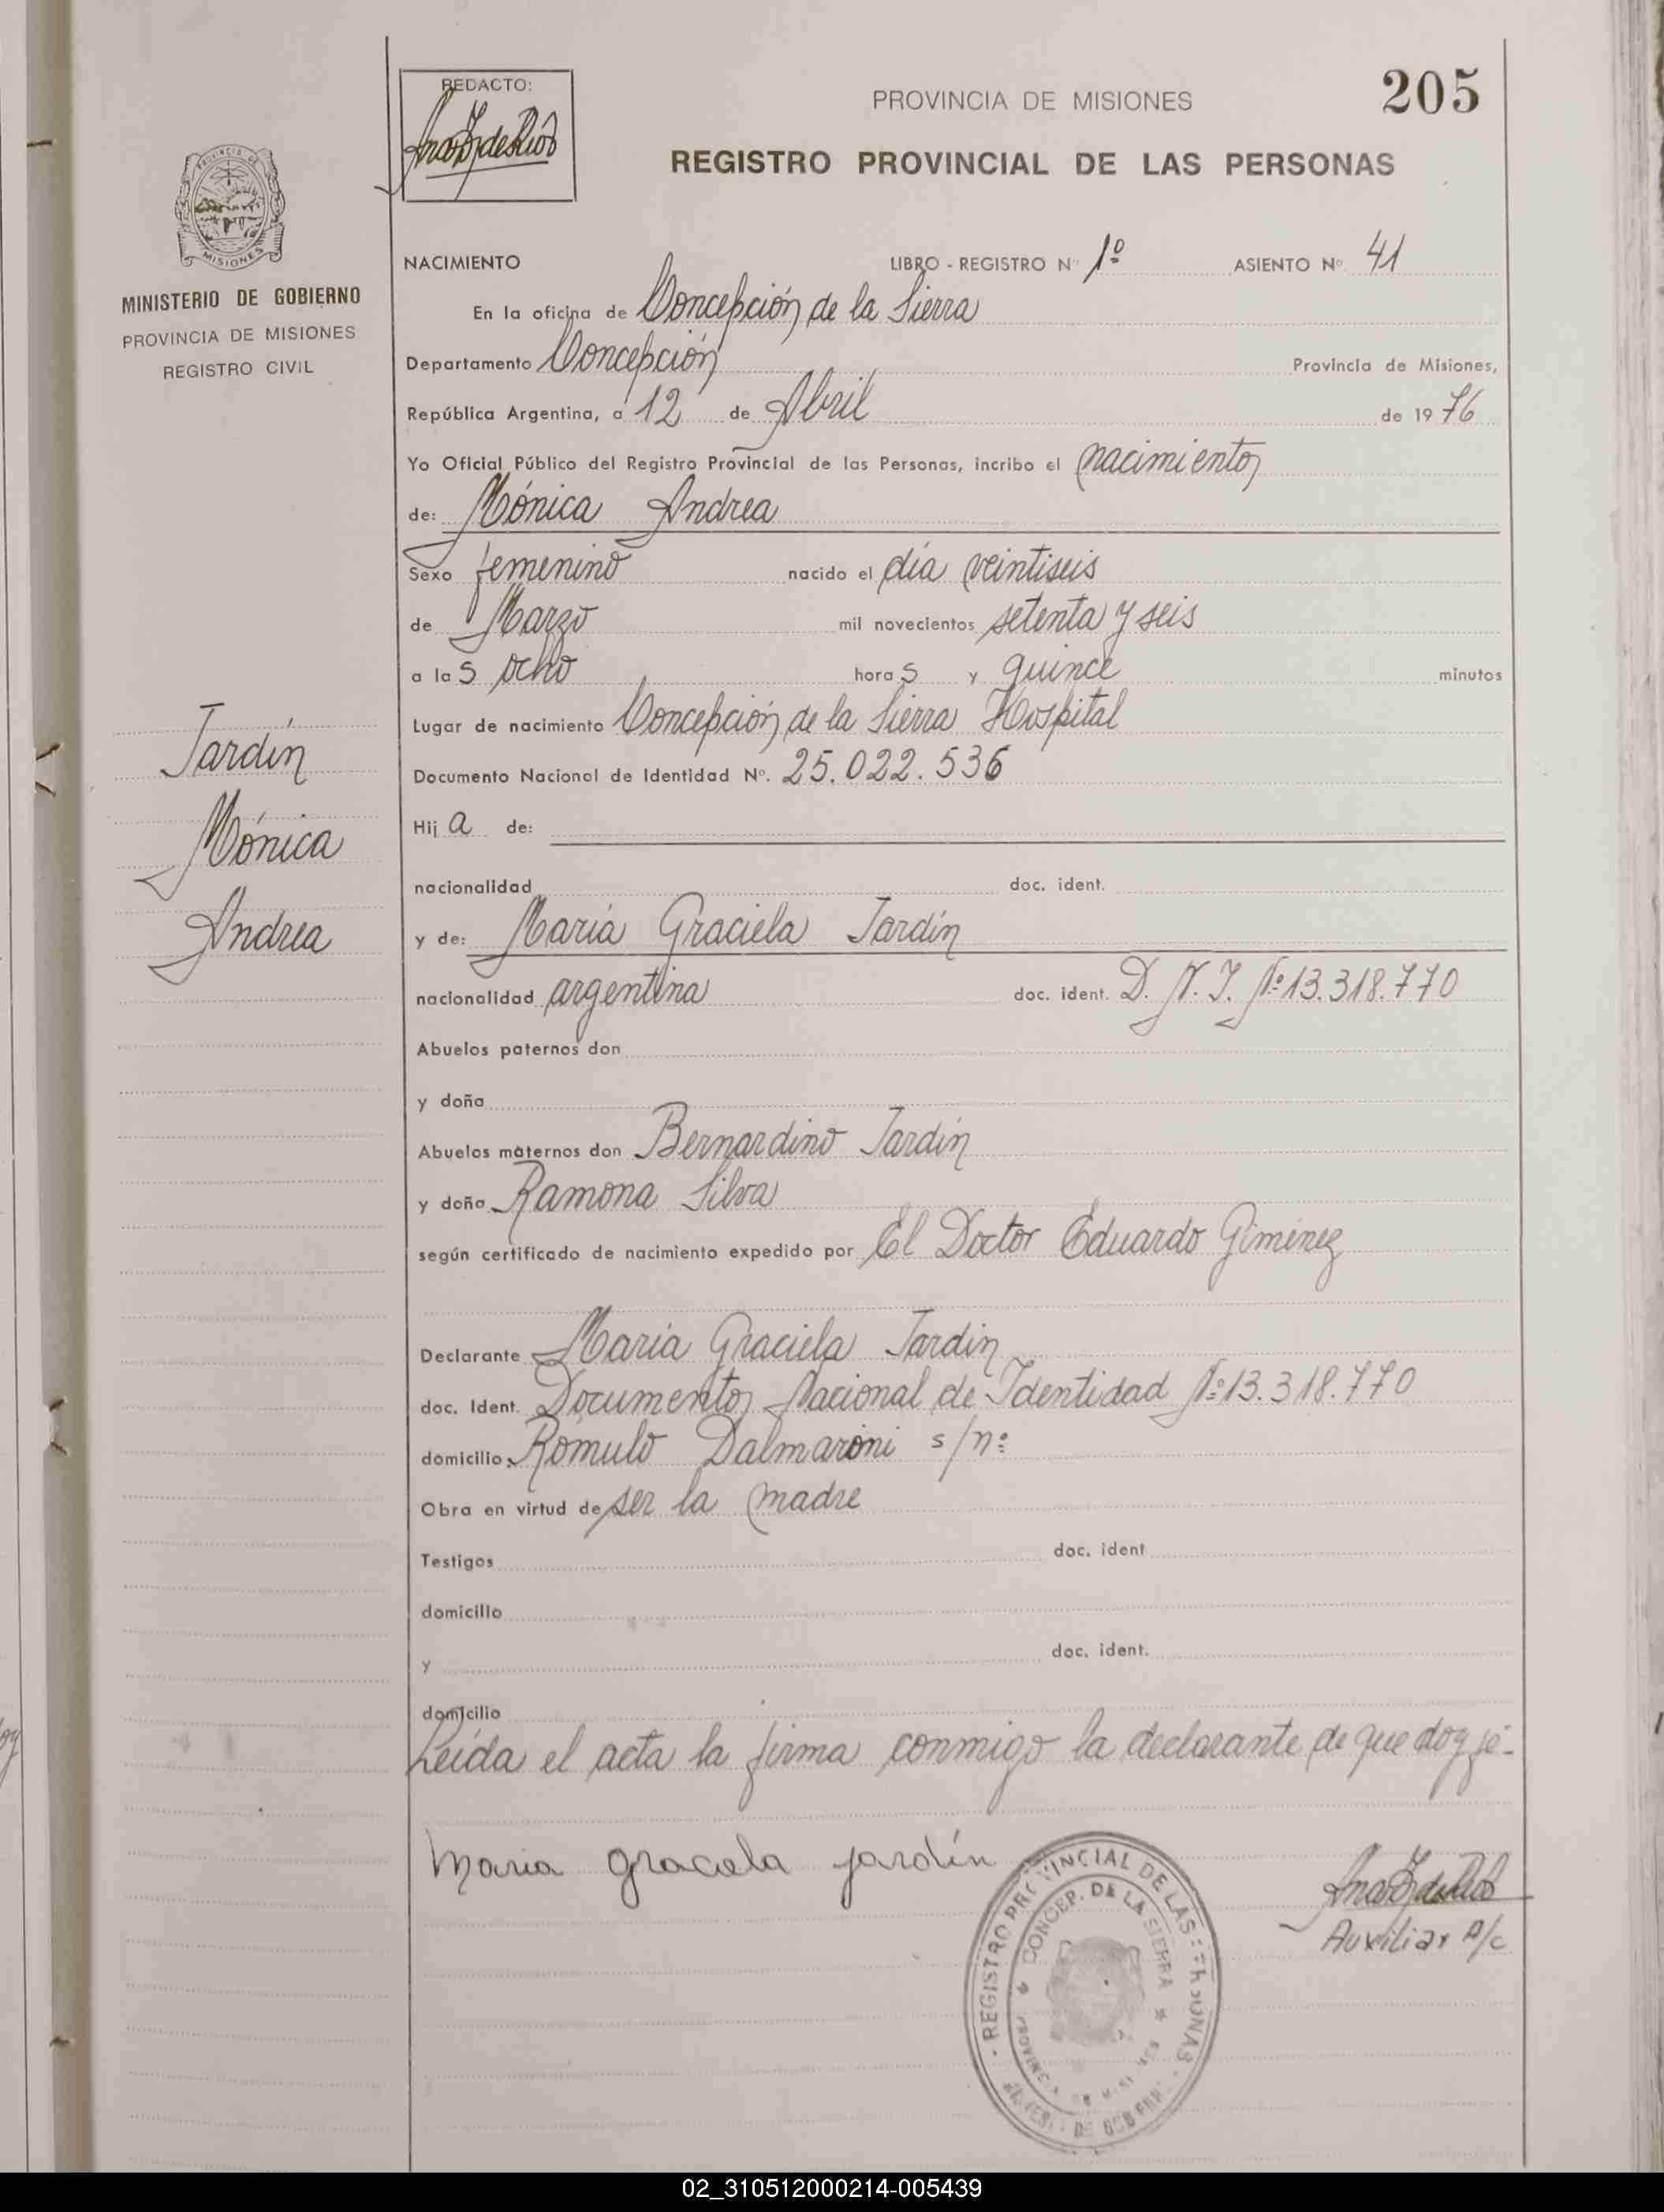 205
REDACTO:
PROVINCIA DE MISIONES
REGISTRO PROVINCIAL DE LAS PERSONAS
PROVINCIA DE
MISIONES
MINISTERIO DE GOBIERNO
PROVINCIA DE MISIONES
REGISTRO CIVIL
NACIMIENTO LIBRO - REGISTRO Nº 1º ASIENTO Nº 41
En la oficina de Concepción de la Sierra
Departamento Concepción Provincia de Misiones,
República Argentina, a 12 de Abril de 1976
Yo Oficial Público del Registro Provincial de las Personas, incribo el nacimiento
de: Mónica Andrea
Sexo femenino nacido el día veintiseis
de Marzo mil novecientos setenta y seis
a las ocho horas y quince minutos
Lugar de nacimiento Concepción de la Sierra Hospital
Documento Nacional de Identidad Nº. 25.022.536
Hija de:
nacionalidad doc. ident.
y de: María Graciela Jardín
nacionalidad argentina doc. ident. D. N. I. Nº 13.318.770
Abuelos paternos don
y doña
Abuelos maternos don Bernardino Jardín
y doña Ramona Silva
según certificado de nacimiento expedido por El Doctor Eduardo Giménez
Declarante María Graciela Jardín
doc. Ident. Documento Nacional de Identidad Nº 13.318.770
domicilio Romulo Dalmaroni s/nº
Obra en virtud de ser la madre
Testigos doc. ident
domicilio
y doc. ident.
domicilio
Leída el acta la firma conmigo la declarante de que doy fé-
Jardín
Mónica
Andrea
Maria gracela jardín
Auxiliar A/c
REGISTRO PROVINCIAL DE LAS PERSONAS
CONCEP. DE LA SIERRA
PROVINCIA DE MISIONES
02_310512000214-005439